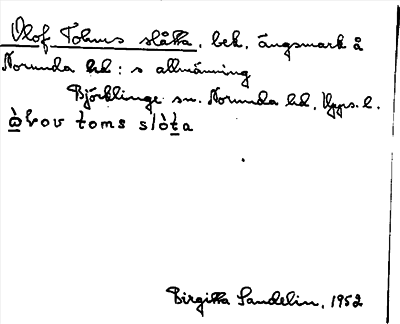 Olof Tohms slåtta, bek. ängsmark å
Norunda hd:s allmänning
Björklinge sn. Norunda hd, Upps. l.
ὼlov toms slòta
Birgitta Sandelin, 1952